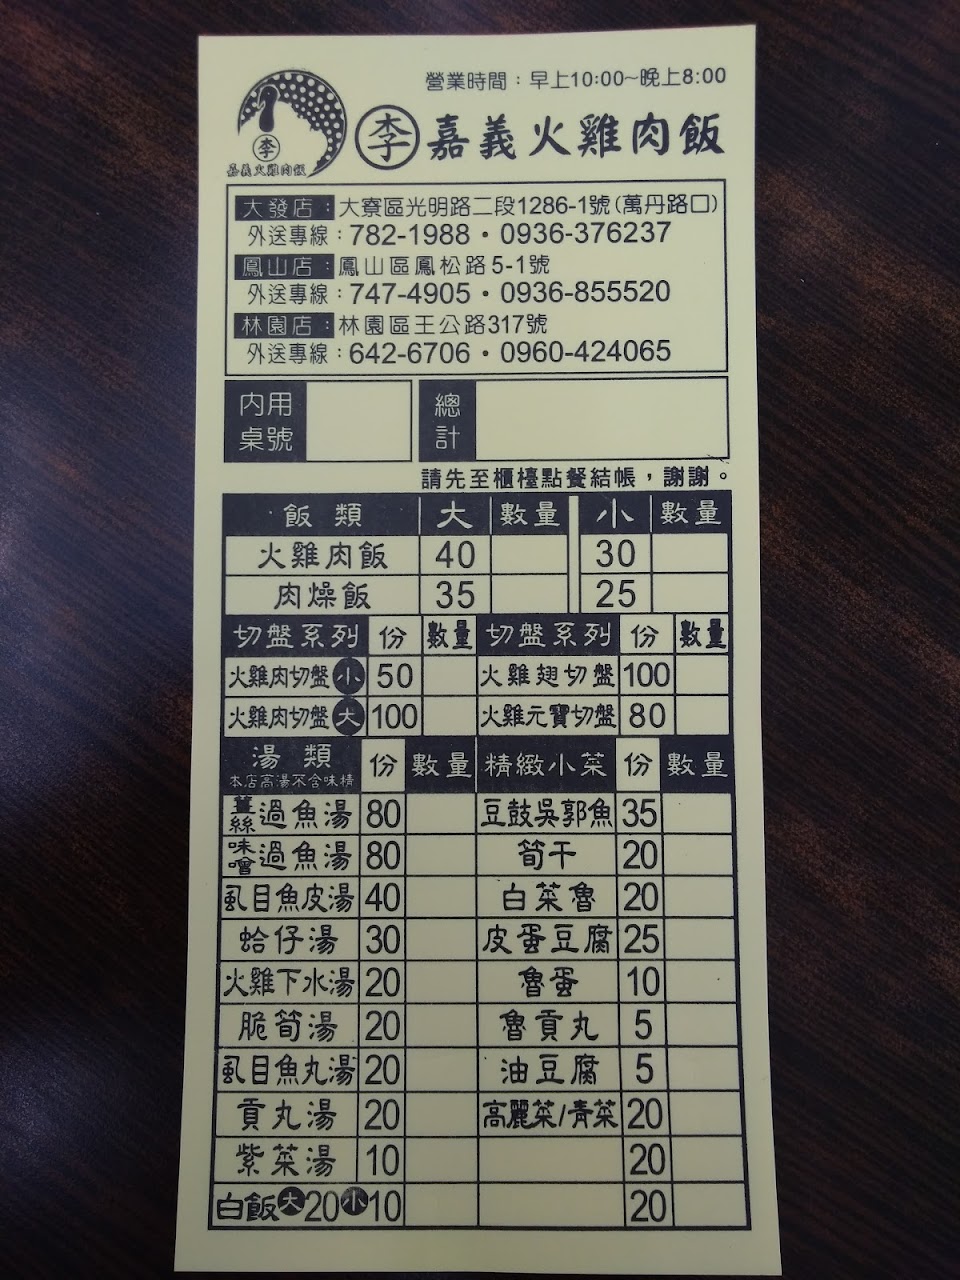 營業時間：早上10:00~晚上8:00
李
嘉義火雞肉飯
李 嘉義火雞肉飯
大發店：大寮區光明路二段1286-1號(萬丹路口)
外送專線：782-1988・0936-376237
鳳山店：鳳山區鳳松路5-1號
外送專線：747-4905・0936-855520
林園店：林園區王公路317號
外送專線：642-6706・0960-424065
內用桌號 總計
請先至櫃檯點餐結帳，謝謝。
飯類 大 數量 小 數量
火雞肉飯 40 30
肉燥飯 35 25
切盤系列 份 數量 切盤系列 份 數量
火雞肉切盤小 50 火雞翅切盤 100
火雞肉切盤大 100 火雞元寶切盤 80
湯類 份 數量 精緻小菜 份 數量
本店高湯不含味精
薑絲過魚湯 80 豆鼓吳郭魚 35
味噌過魚湯 80 筍干 20
虱目魚皮湯 40 白菜魯 20
蛤仔湯 30 皮蛋豆腐 25
火雞下水湯 20 魯蛋 10
脆筍湯 20 魯貢丸 5
虱目魚丸湯 20 油豆腐 5
貢丸湯 20 高麗菜/青菜 20
紫菜湯 10 20
白飯大20小10 20